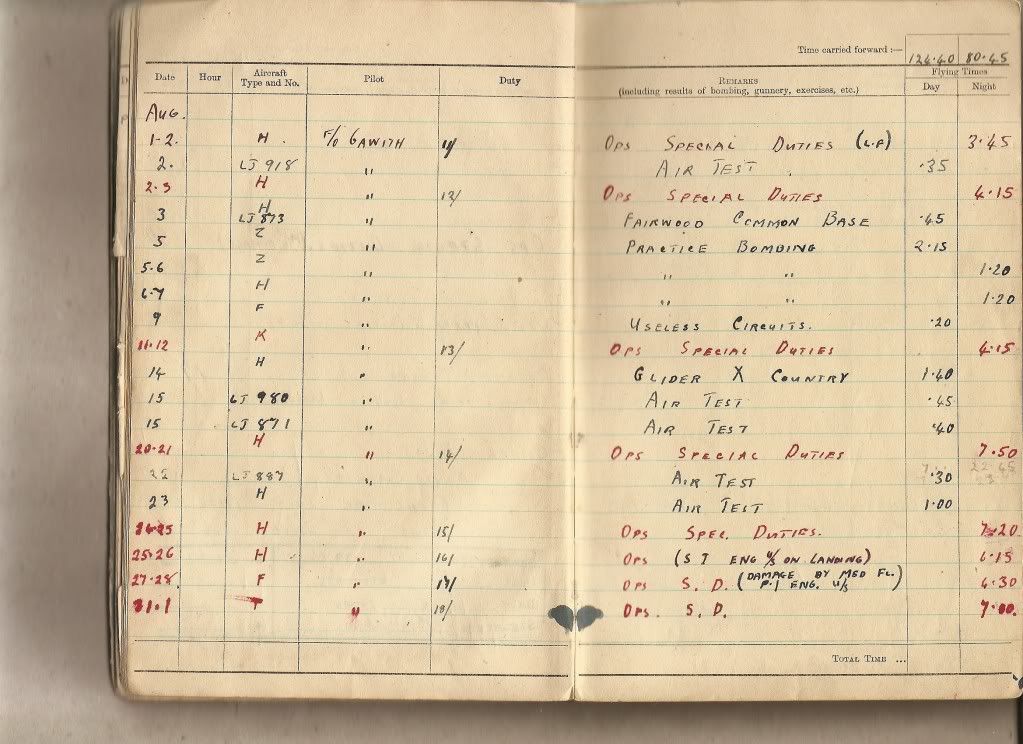 Time carried forward :— 124.40 80.45
Date Hour Aircraft Type and No. Pilot Duty REMARKS (including results of bombing, gunnery, exercises, etc.) Flying Times Day Night
Aug.
1-2. H. F/O GAWITH 11/ OPS SPECIAL DUTIES (L.F) 3.45
2. LJ 918 " AIR TEST .35
2.3 H " 12/ OPS SPECIAL DUTIES 4.15
3 H LJ 873 " FAIRWOOD COMMON BASE .45
5 Z " PRACTICE BOMBING 2.15
5.6 Z " " " 1.20
6.7 H " " " 1.20
9 F " USELESS CIRCUITS. .20
11.12 K " 13/ OPS SPECIAL DUTIES 4.15
14 H " GLIDER X COUNTRY 1.40
15 LJ 980 " AIR TEST .45
15 LJ 871 " AIR TEST .40
20.21 H " 14/ OPS SPECIAL DUTIES 7.50
22 LJ 887 " AIR TEST .30
23 H " AIR TEST 1.00
H " 15/ OPS SPEC. DUTIES. 7.20
25.26 H " 16/ OPS (S I ENG U/S ON LANDING) 6.15
27-28. F " 17/ OPS S.D. (DAMAGE BY MED FL. P.I ENG. U/S) 4.30
31.1 F " 18/ OPS. S.D. 7.00.
TOTAL TIME ...